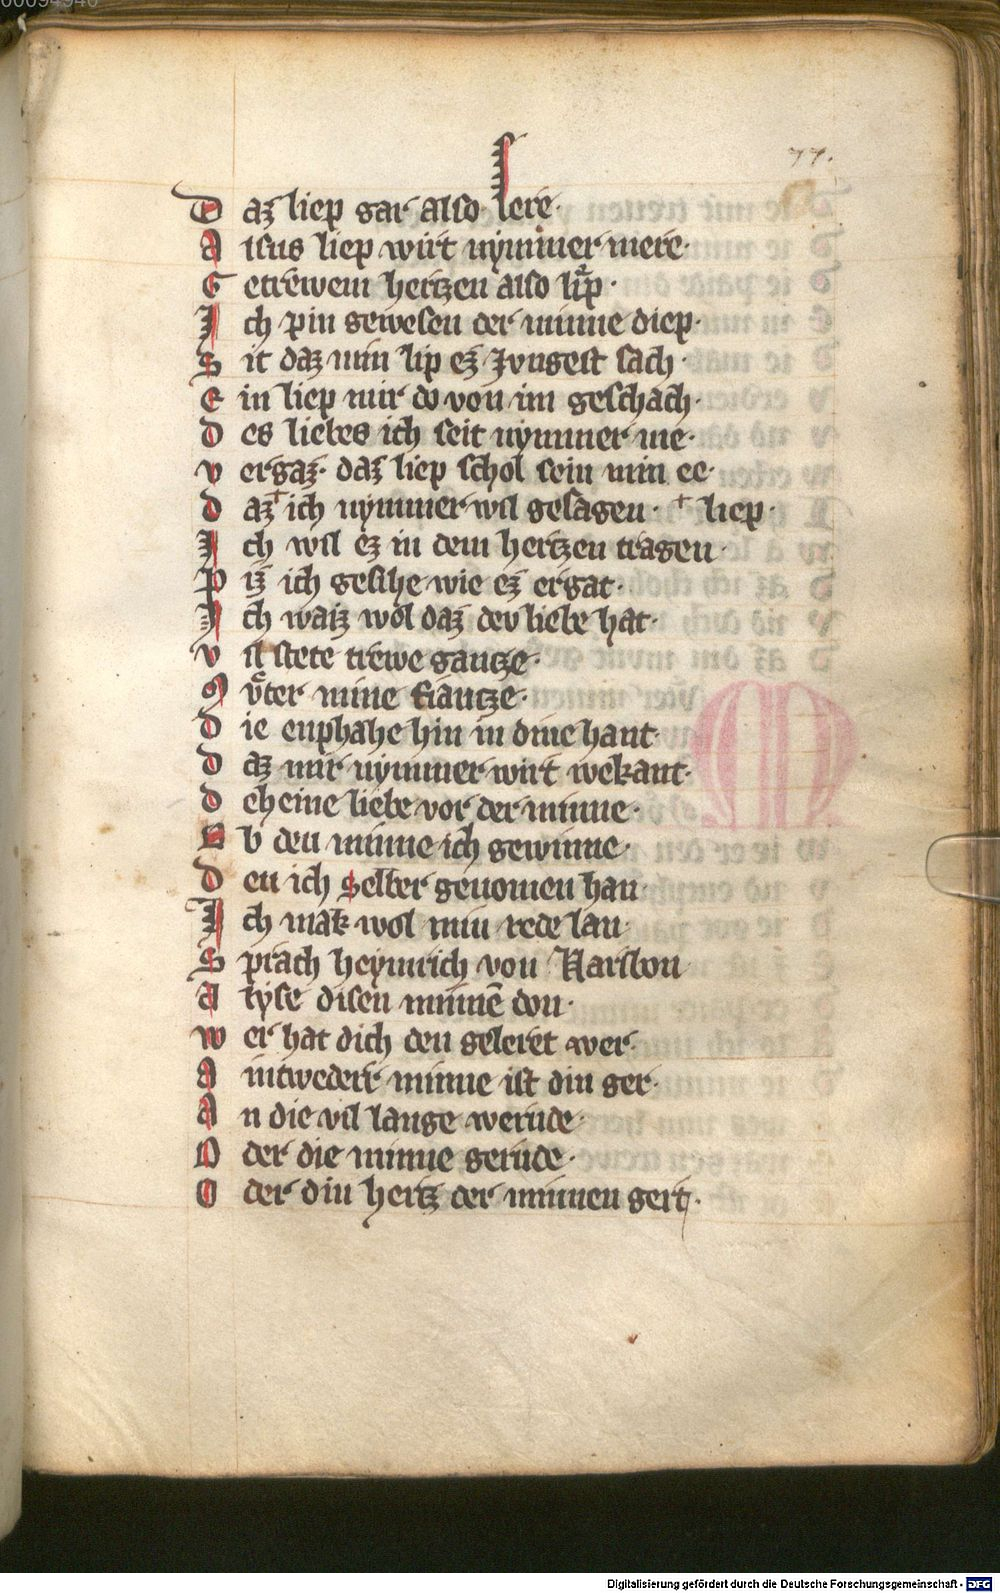 00094946
77.
Daz liep gar also sere·
Aisus liep wirt nymmer mere·
Getrewem hertzen also lip·
Ich pin gewesen der minne diep·
Sit daz min lip ez Jvngest sach·
Ein liep mir do von im geschach·
des liebes ich seit nymmer me·
vergaz· daz liep schol sein min ee·
daz + ich nymmer wil gesagen· + liep·
Ich wil ez in dem hertzen tragen·
Piz ich gesihe wie ez ergat·
Ich waiz wol daz dev liebe hat·
vil stete trewe gantze·
Gvter mine fiantze·
die enphahe hin in dine hant·
daz mir nymmer wirt wekant·
deheine liebe vor der minne·
Ob den minne ich gewinne·
den ich selber genomen han
Ich mak wol min rede lan·
Sprach heynrich von Narbon
Atyse disen minnē don·
wer hat dich den geleret wer·
Aintweder minne ist din ger·
An die vil lange wernde·
Oder die minne gernde·
Oder din hertz der minnen gert·
Digitalisierung gefördert durch die Deutsche Forschungsgemeinschaft - DFG